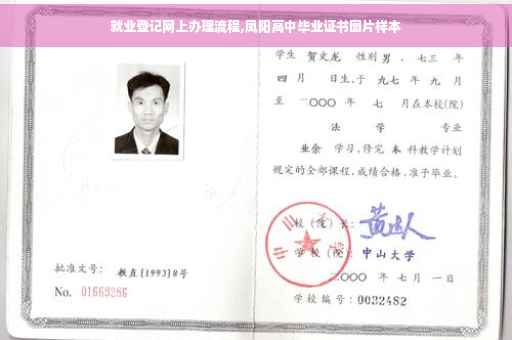 就业登记网上办理流程,凤阳高中毕业证书图片样本
学生 贺文龙 性别 男 、七三 年
四 月 日生,于 九七 年 九 月
至 二〇〇〇 年 七 月在本校(院)
法 学 专业
业余 学习,修完 本 科教学计划
规定的全部课程,成绩合格,准予毕业。
校 (院) 长:
学 校 (院) 中山大学
二〇〇〇 年 七 月 一 日
学校编号: 0032482
批准文号: 教直[1993]8号
No. 01669286